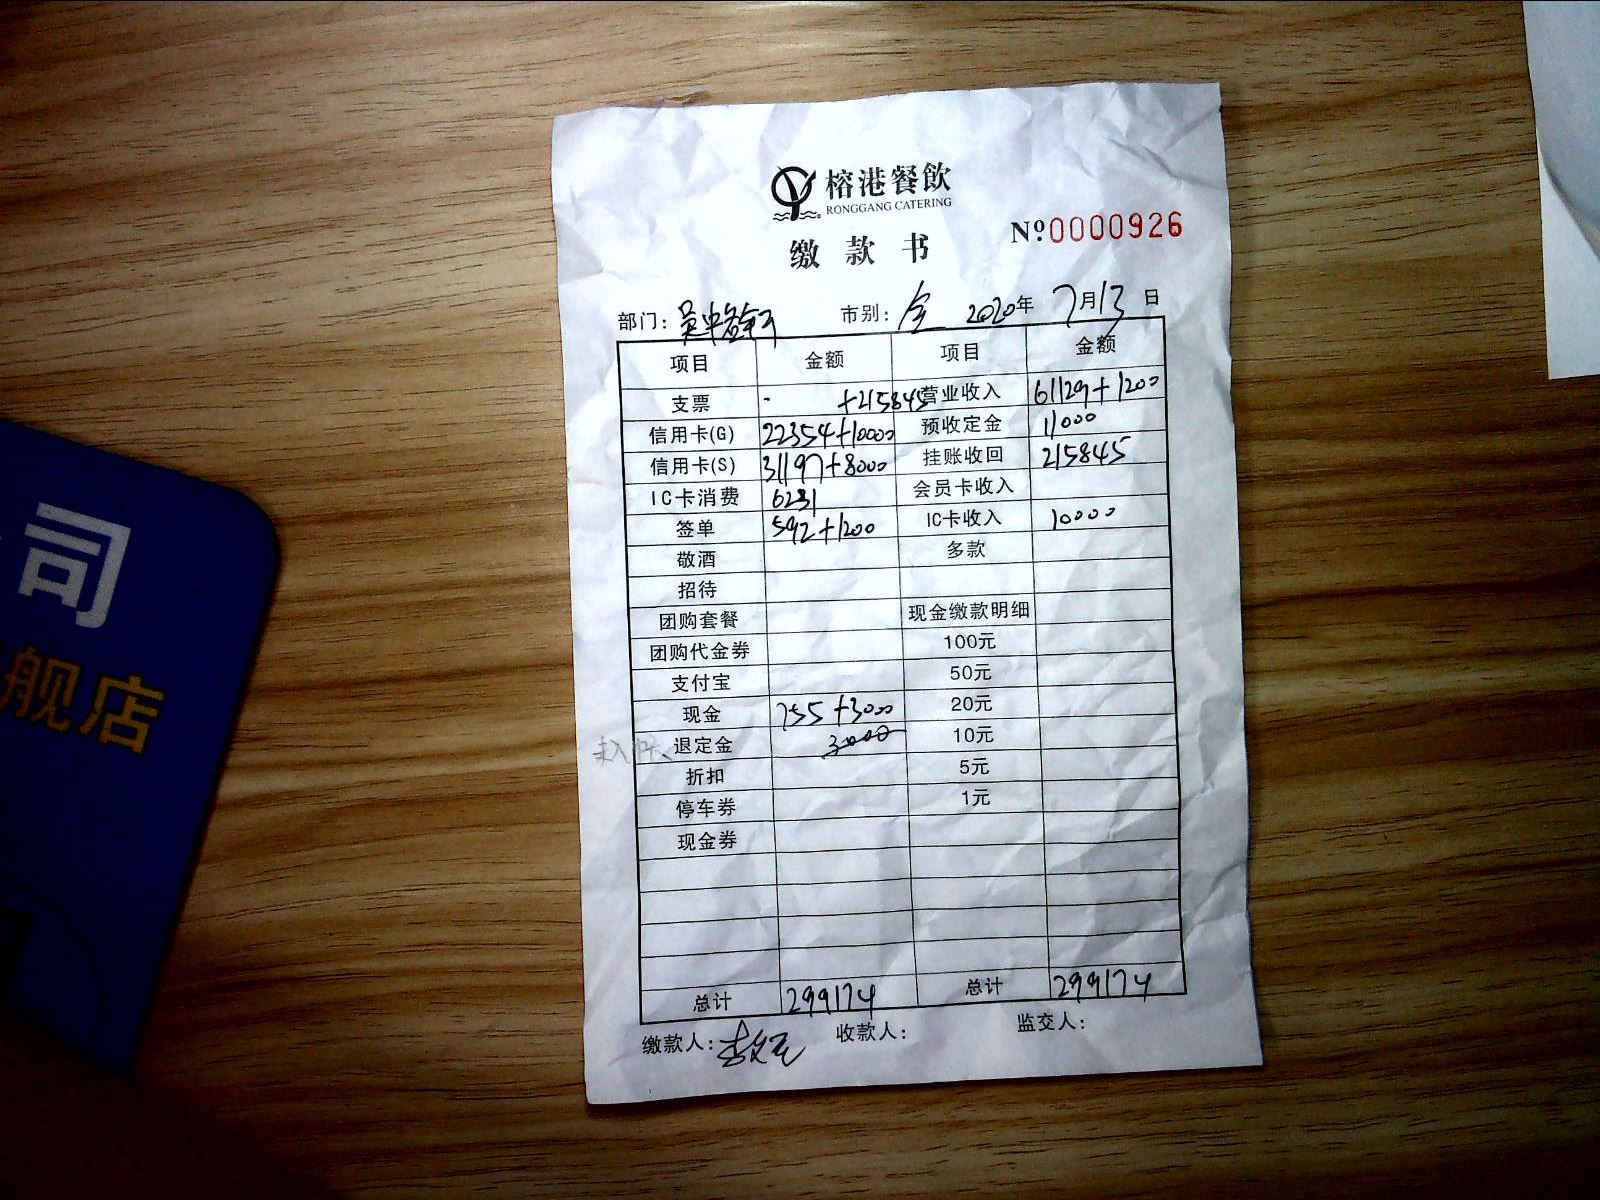 榕港餐飲
RONGGANG CATERING
缴款书
Nº0000926
部门： 市别：全 2020年 7月13日
项目 金额 项目 金额
支票 - +215845 营业收入 61129+1200
信用卡(G) 22354+10000 预收定金 11000
信用卡(S) 31197+8000 挂账收回 215845
IC卡消费 6231 会员卡收入
签单 592+1200 IC卡收入 10000
敬酒 多款
招待
团购套餐 现金缴款明细
团购代金券 100元
支付宝 50元
现金 755+3000 20元
退定金 3000 10元
折扣 5元
停车券 1元
现金券
总计 299174 总计 299174
缴款人： 收款人： 监交人：
司
舰店